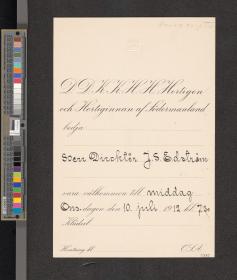 D.D.K.K.H.H. Hertigen
och Hertiginnan af Södermanland
bedja
Herr Direktör J. S. Edström
vara välkommen till middag
Ons.dagen den 10. juli 1912 kl. 7.30
Klädsel
O.S.A.